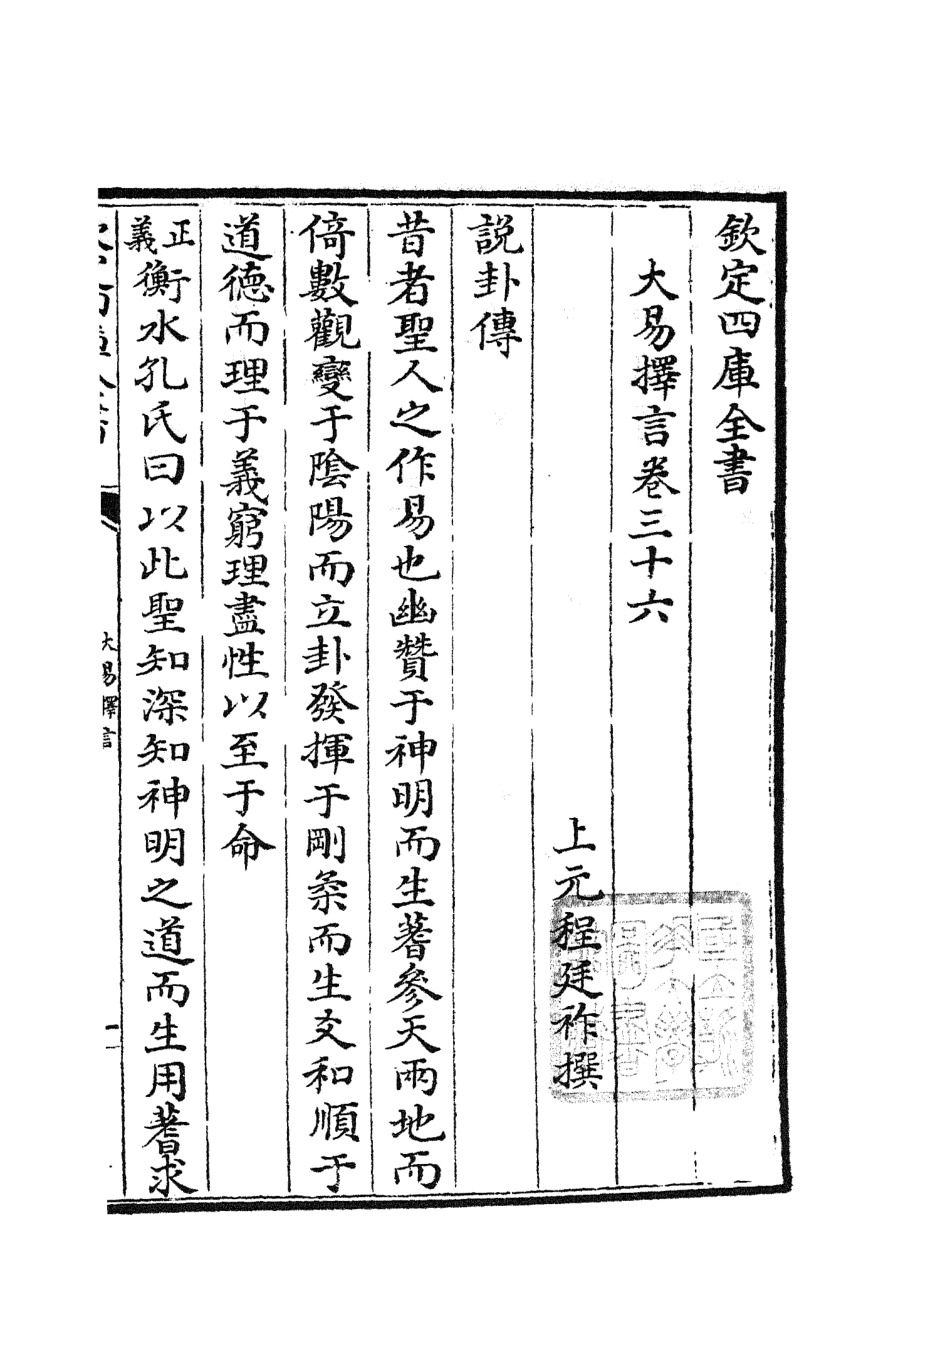 欽定四庫全書
大易擇言卷三十六
上元程廷祚撰
說卦傳
昔者聖人之作易也幽贊于神明而生蓍參天兩地而
倚數觀變于陰陽而立卦發揮于剛柔而生爻和順于
道德而理于義窮理盡性以至于命
正義衡水孔氏曰以此聖知深知神明之道而生用蓍求
大易擇言